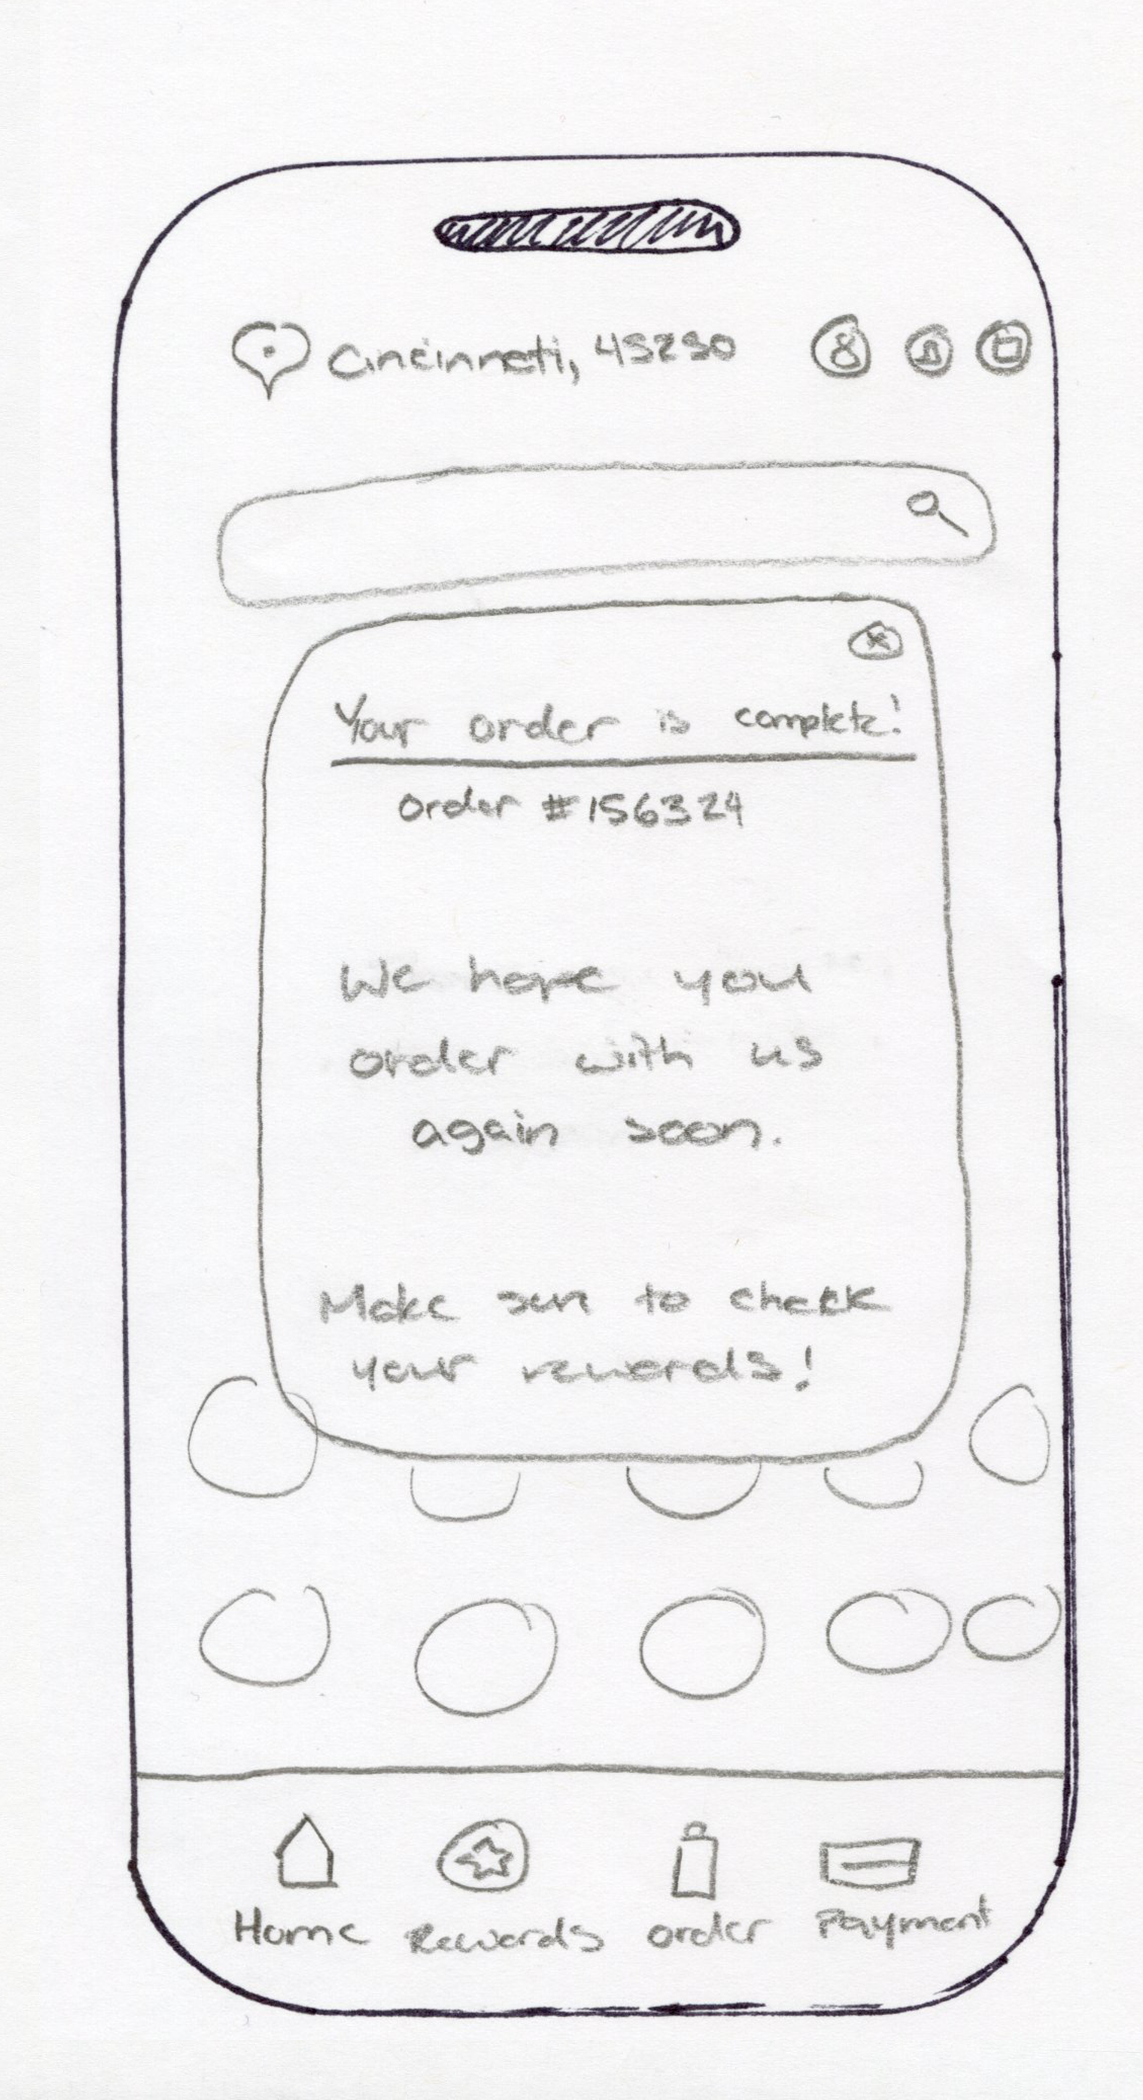 Cincinnati, 45230
Your order is complete!
Order #156324
We hope you
order with us
again soon.
Make sure to check
your rewards!
Home Rewards order Payment